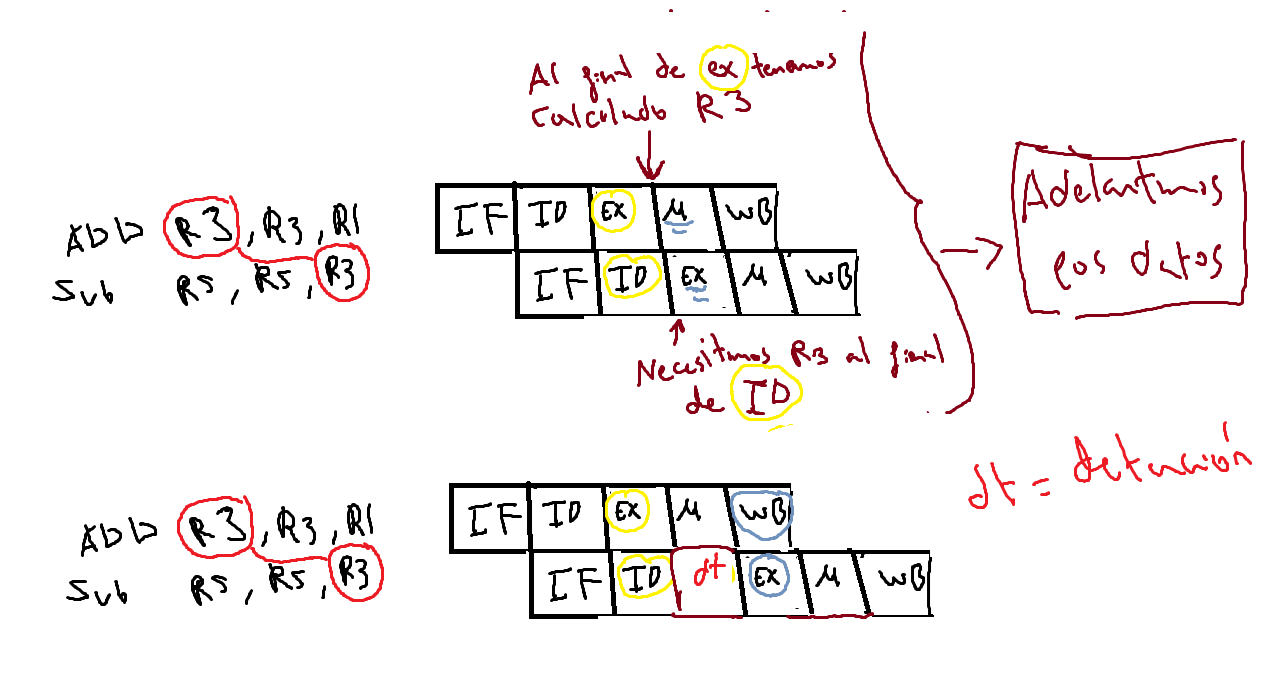 Al final de ex tenemos
Calculado R3
ADD R3, R3, R1
Sub R5, R5, R3
IF ID EX M WB
IF ID EX M WB
Necesitamos R3 al final
de ID
Adelantamos
los datos
dt = detención
ADD R3, R3, R1
Sub R5, R5, R3
IF ID EX M WB
IF ID dt EX M WB